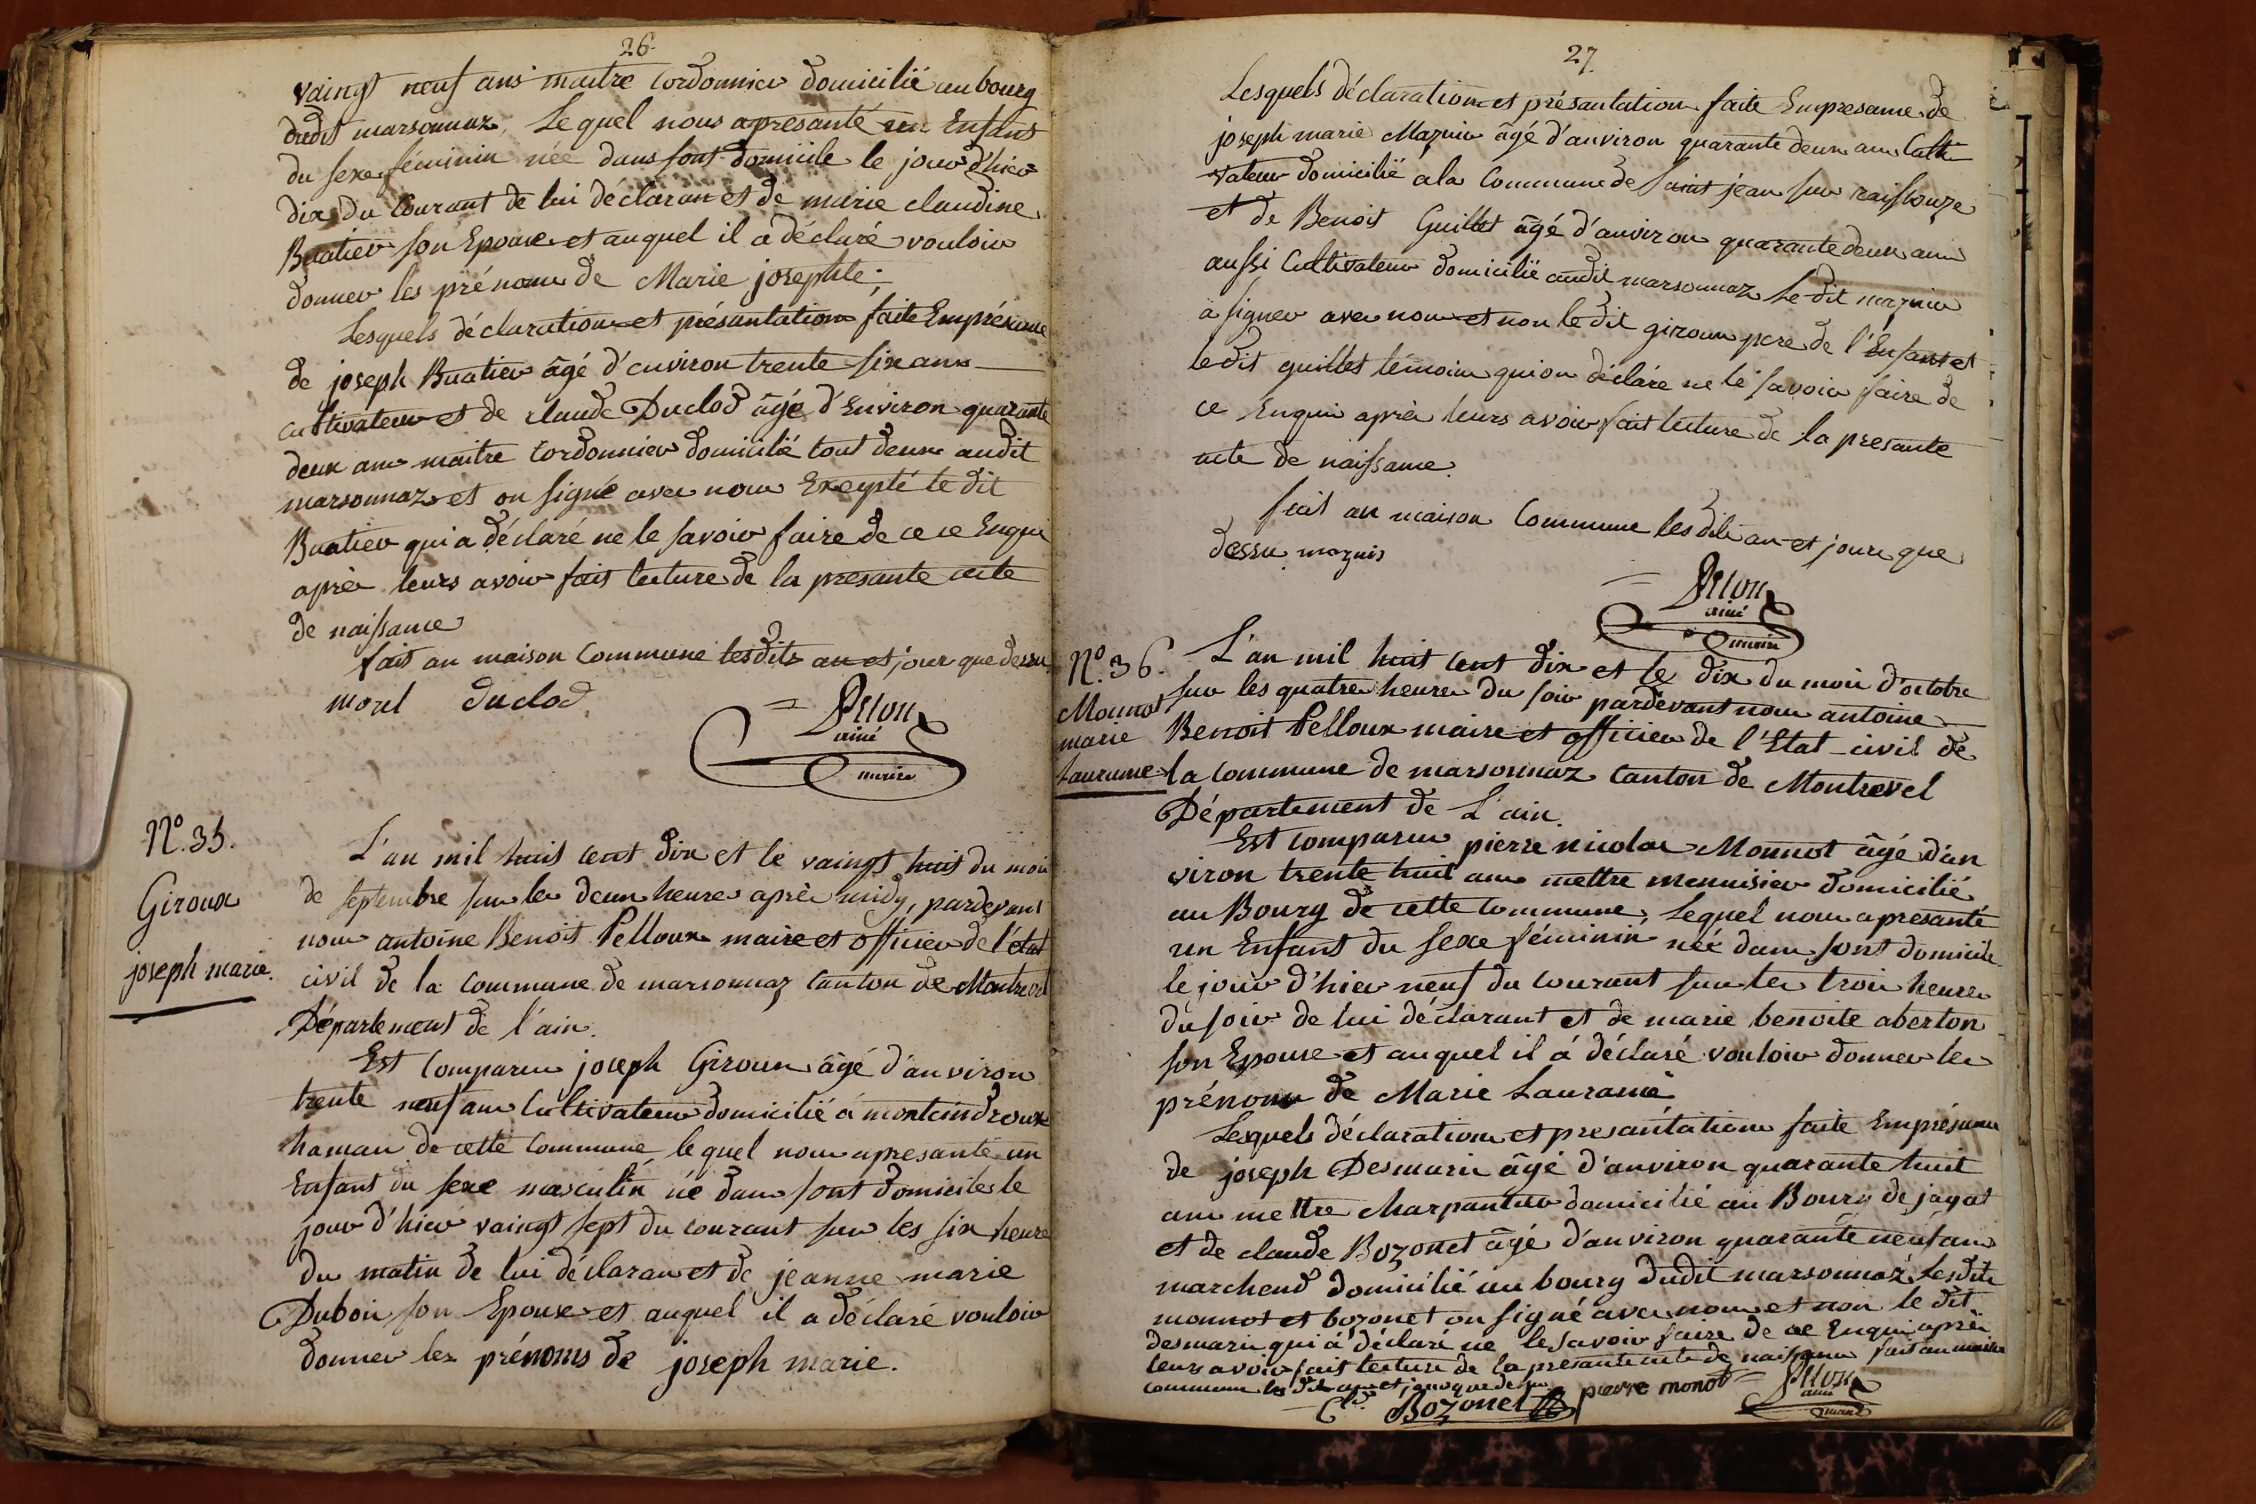 26.
vaingt neuf ans maitre cordonnier domicilié au bourg
dudit marsonnaz, Lequel nous apresanté un Enfant
du sexe féminin née dans sont domicile le jour d'hier
dix du Courant de lui déclarant et de marie claudine
Buatier son Epouse et auquel il a déclaré vouloir
donner les prénoms de Marie josephte;
Lesquels déclaration et présantation faite Emprésance
de joseph Buatier âgé d'environ trente six ans
cultivateur et de claude Duclod âgé d'Environ quarante
deux ans maitre Cordonnier domicilié tout deux audit
marsonnaz et on signé avec nous Excepté le dit
Buatier qui a déclaré ne le savoir faire de ce ce Enqui
après leurs avoir fait lecture de la presante acte
de naissance
fait an maison Commune lesdits an et jour que dessu
morel duclod
Pelloux
ainé
maire
N°. 35.
Giroux
joseph marie.
L'an mil huit cent dix et le vaingt huit du mois
de septembre sur les deux heures après midy, pardevant
nous antoine Benoit Pelloux maire et officier de l'état
civil de la Commune de marsonnaz Canton de Montrevel
Département de l'ain.
Est Comparu joseph Giroux âgé d'anviron
trente neuf ans Cultivateur domicilié à montcindroux
hamau de cette Commune lequel nous apresanté un
Enfant du sexe masculin né dans sont domicile le
jour d'hier vaingt sept du courant sur les six heure
du matin de lui déclarant et de jeanne marie
Dubois son Epouse et auquel il a déclaré vouloir
donner les prénoms de joseph marie.
27.
Lesquels déclaration et présantation faite Empresance de
joseph marie Maznie âgé d'anviron quarante deux ans Culti
vateur domicilié a la Commune de saint jean sur raissouze
et de Benoit Guillet âgé d'anviron quarante deux ans
aussi Cultivateur domicilié audit marsonnaz Le dit maznie
a signer avec nous et non le dit giroux pere de l'Enfant et
le dit guillet témoin qui on déclaré ne le savoir faire de
ce Enquis après leurs avoir fait lecture de la presante
acte de naissance.
fait an maison Commune lesdits an et jours que
dessu maznis
Pelloux
ainé
maire
N°. 36.
Monnot
marie
Lauranne
L'an mil huit cent dix et le dix du mois d'octobre
sur les quatre heures du soir pardevant nous antoine
Benoit Pelloux maire et officier de l'Etat civil de
la commune de marsonnaz Canton de Montrevel
Département de L'ain.
Est Comparu pierre nicolas Monnot âgé d'an
viron trente huit ans mettre mennisier domicilié
au Bourg de cette Commune, Lequel nous apresanté
un Enfant du sexe féminin née dans sont domicile
le jour d'hier neuf du courant sur les trois heures
du soir de lui déclarant et de marie benoite aberton
son Epouse et auquel il á déclaré vouloir donner les
prénoms de Marie Lauranne
Lesquels déclaration et presantation faite Emprésance
de joseph Desmaris âgé d'anviron quarante huit
ans mettre Charpantier domicilié au Bourg de jayat
et de claude Bozonet âgé d'anviron quarante neuf ans
marchend domicilié au bourg dudit marsonnaz, Lesdits
monnot et bozonet on signé avec nous et non le dit
desmaris qui á déclaré ne le savoir faire de ce Enqui après
leurs avoir fait lecture de la presante acte de naissance fait an maison
commune les dits an et jour que dessu
Cde. Bozonet pierre monot Pelloux
ainé
maire